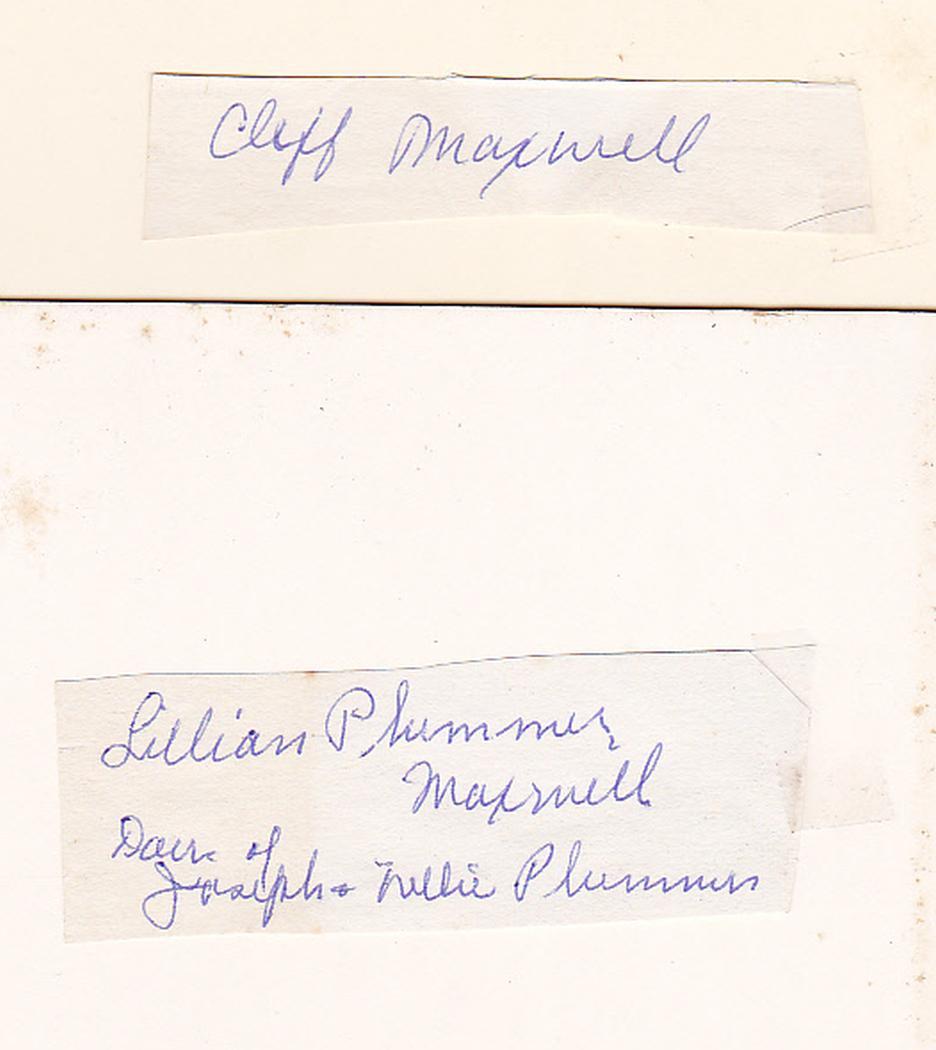 Cliff Maxwell
Lillian Plummer
Maxwell
Dau. of
Joseph & Nellie Plummer